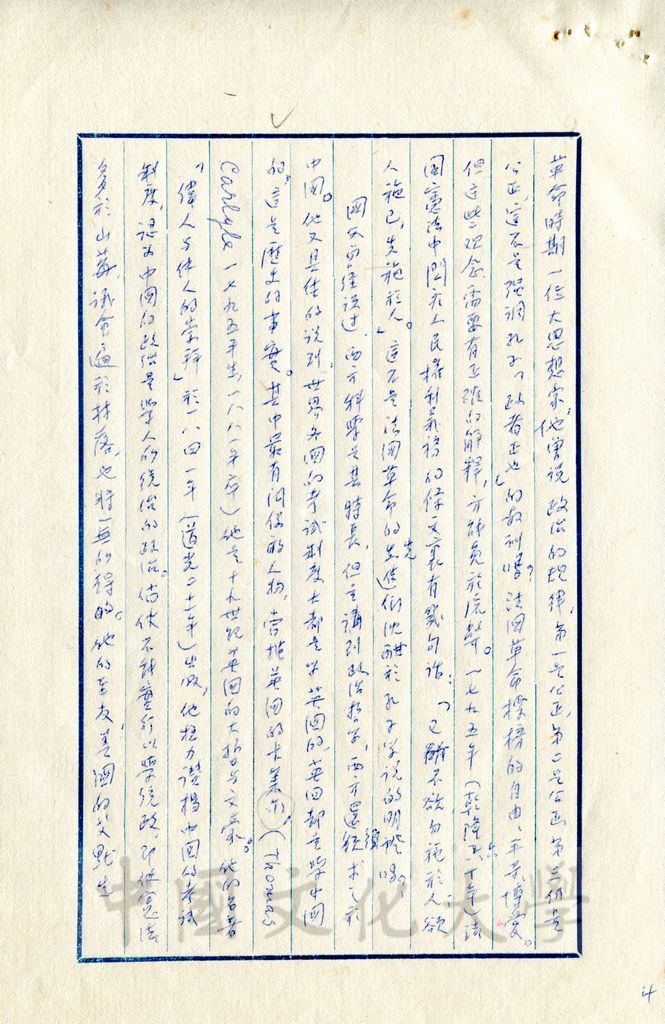 革命時期一位大思想家,他曾說政治的規律,第一是公正,第二是公正,第三仍是
公正,這不是強調孔子「政者正也」的教訓嗎?法國革命標榜的自由、平等、博愛。
但這些觀念需要有正確的解釋,方能免於流弊。一七九五年(乾隆六十年)法
國憲法中關於人民權利義務的條文裏有幾句話:「己所不欲勿施於人,欲
人施己,先施於人。」這不是法國革命的先進們沈醉於孔子學說的明證嗎?
國父曾經說過,西方科學是其特長,但主講到政治哲學,西方還須求之於
中國。他又具体的說到,世界各國的考試制度大都是學英國的,英國都是學中國
的。這是歷史的事實。其中最有關係的人物,當推英國的卡萊爾。(Thomas
Carlyle 一七九五年生一八八一年卒)他是十九世紀英國的大哲與文豪。他的名著
「偉人與偉人的崇拜」於一八四一年(道光二十一年)出版,他極力讚揚中國的考試
制度,認為中國的政治是學人的統治的政治。倘使不能實行以學統政,即使憲法
多於山莓,議會遍於村落,也將一無所得的。他的至友,美國的艾默生
4
中國文化大學